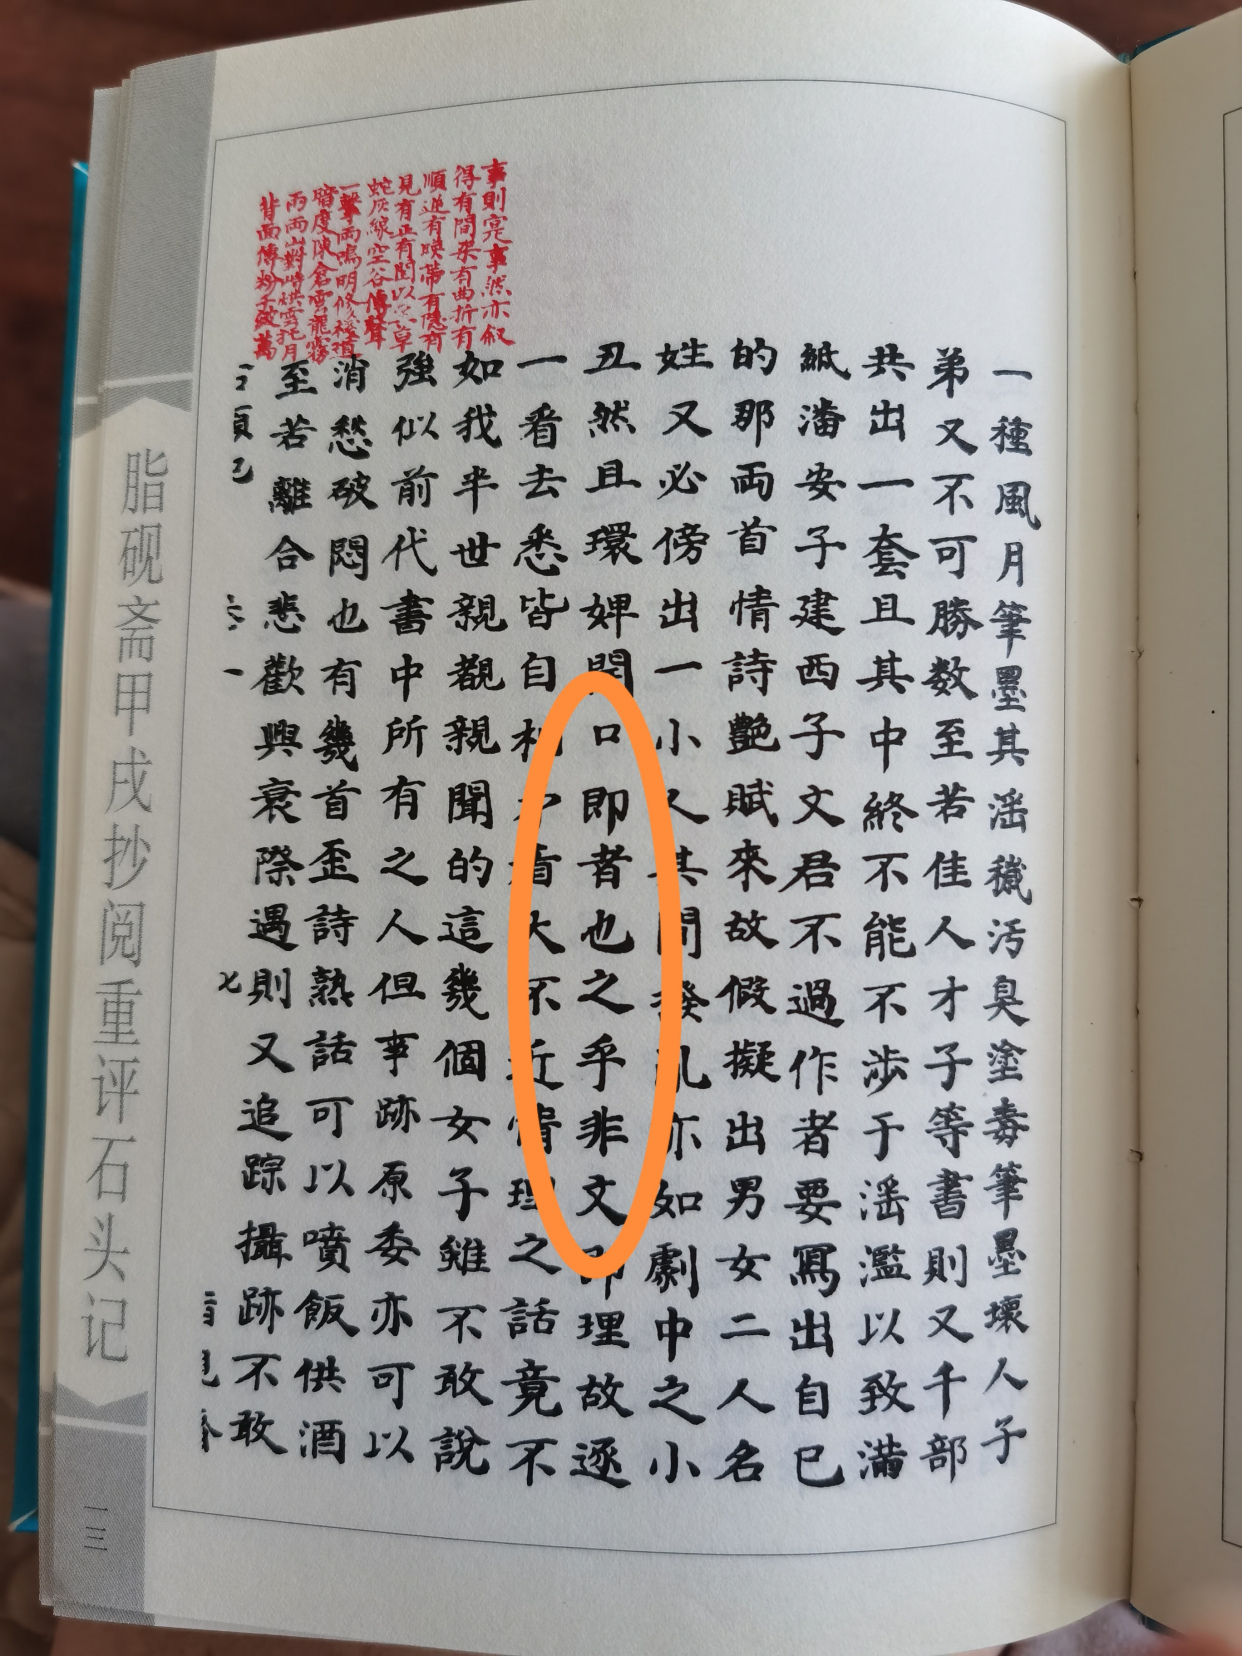 事則寔事然亦叙
得有間架有曲折有
順逆有映帶有隱有
見有正有閏以至草
蛇灰線空谷傳聲
一擊兩鳴明修棧道
暗度陳倉雲龍霧
雨兩山對峙烘雲托月
背面傅粉千皴萬
一種風月筆墨其滛穢污臭塗毒筆墨壞人子
弟又不可勝数至若佳人才子等書則又千部
共出一套且其中終不能不涉于滛濫以致滿
紙潘安子建西子文君不過作者要寫出自己
的那両首情詩艷賦來故假擬出男女二人名
姓又必傍出一小人其間撥乱亦如劇中之小
丑然且環婢開口即者也之乎非文即理故逐
一看去悉皆自相矛盾大不近情理之話竟不
如我半世親覩親聞的這幾個女子雖不敢說
強似前代書中所有之人但事跡原委亦可以
消愁破悶也有幾首歪詩熟話可以噴飯供酒
至若離合悲歡興衰際遇則又追踪攝跡不敢
脂砚斋甲戌抄阅重评石头记
一三